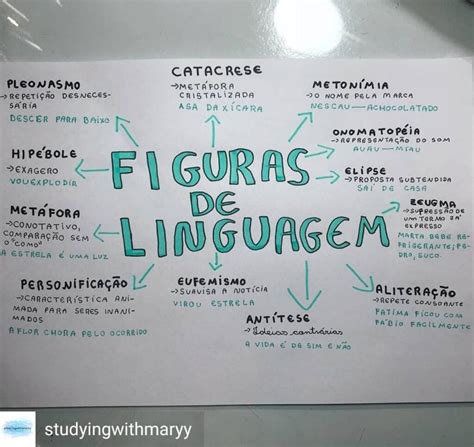 PLEONASMO
→REPETIÇÃO DESNECES-
SÁRIA
DESCER PARA BAIXO
CATACRESE
→METÁFORA
CRISTALIZADA
ASA DA XÍCARA
METONÍMIA
→O NOME PELA MARCA
NESCAU—ACHOCOLATADO
ONOMATOPÉIA
→REPRESENTAÇÃO DO SOM
AUAU—MIAU
HIPÉBOLE
→EXAGERO
VOU EXPLODIR
FIGURAS
DE
LINGUAGEM
ELIPSE
→PROPOSTA SUBTENDIDA
SAÍ DE CASA
METÁFORA
→CONOTATIVO,
COMPARAÇÃO SEM
O "COMO"
A ESTRELA É UMA LUZ
ZEUGMA
→SUPRESSÃO DE
UM TERMO JÁ
EXPRESSO
MARTA BEBE RE-
FRIGERANTE; PE-
DRO, SUCO.
PERSONIFICAÇÃO
→CARACTERÍSTICA ANI-
MADA PARA SERES INANI-
MADOS
A FLOR CHORA PELO OCORRIDO
EUFEMISMO
→SUAVISA A NOTÍCIA
VIROU ESTRELA
ANTÍTESE
→Ideias contrárias
A VIDA É DE SIM E NÃO
ALITERAÇÃO
→REPETE CONSOANTE
FATIMA FICOU COM
FÁBIO FACILMENTE
studyingwithmaryy